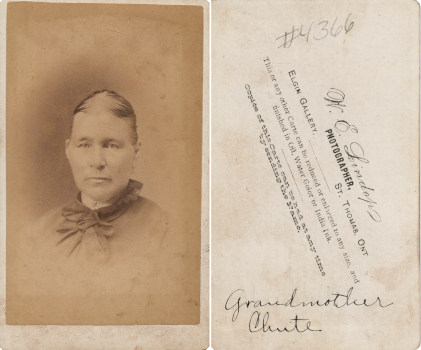 #4366
W. E. Lindop
PHOTOGRAPHER,
ST. THOMAS, ONT
ELGIN GALLERY.
This or any other Carte can be reduced or enlarged to any size, and
finished in Oil, Water Color or India Ink.
Copies of this Carte can be had at any time
by sending the Name.
Grandmother
Chute